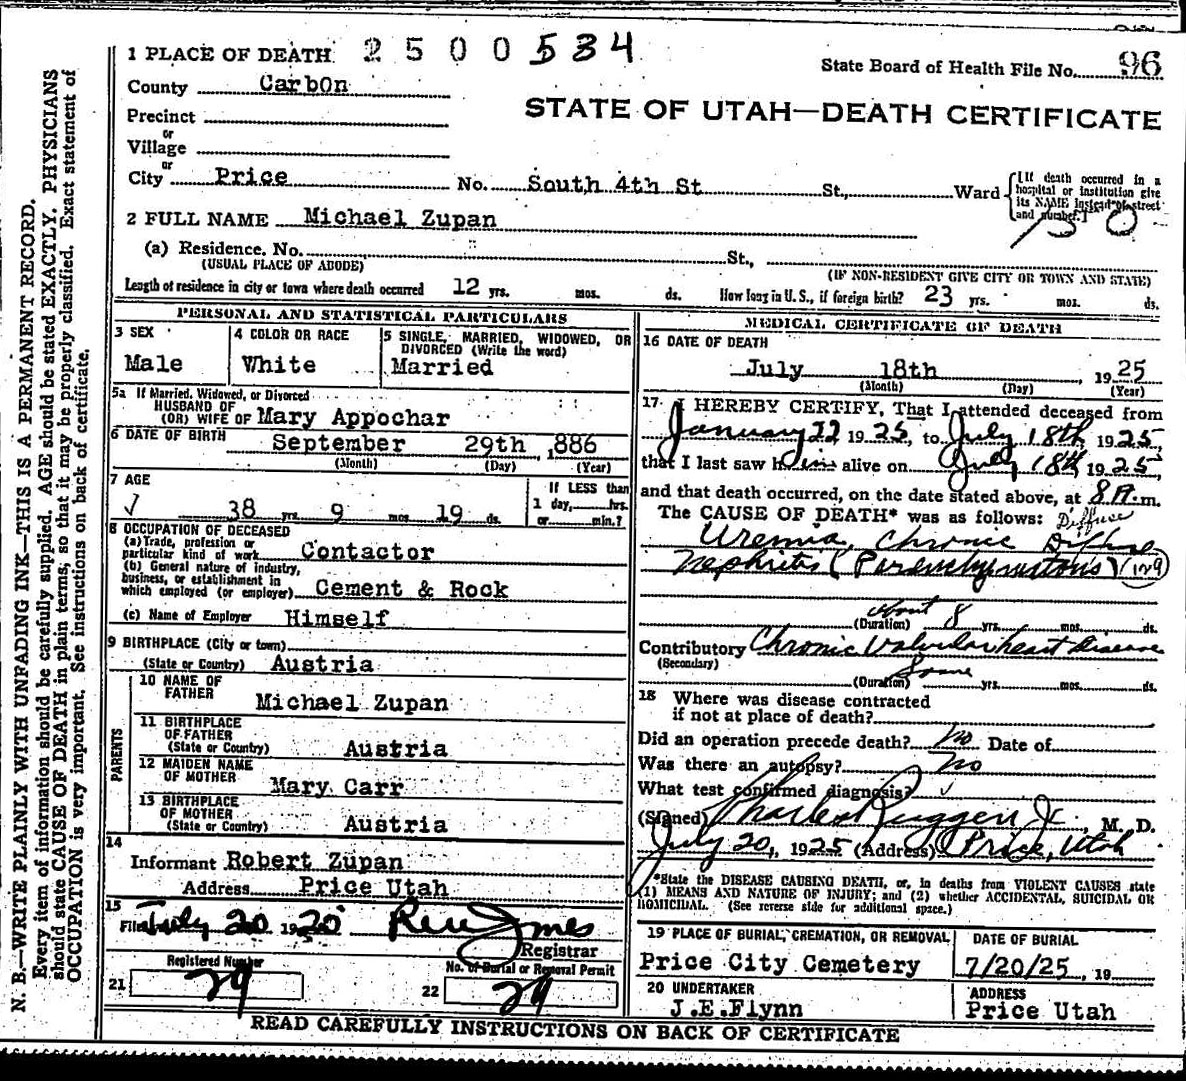 1 PLACE OF DEATH 2500534
State Board of Health File No. 96
County Carbon
STATE OF UTAH—DEATH CERTIFICATE
Precinct
or
Village
or
City Price No. South 4th St St., Ward
[If death occurred in a hospital or institution give its NAME instead of street and number.]
150
2 FULL NAME Michael Zupan
(a) Residence. No. " St.,
(USUAL PLACE OF ABODE) (IF NON-RESIDENT GIVE CITY OR TOWN AND STATE)
Length of residence in city or town where death occurred 12 yrs. mos. ds. How long in U. S., if foreign birth? 23 yrs. mos. ds.
PERSONAL AND STATISTICAL PARTICULARS
3 SEX
Male
4 COLOR OR RACE
White
5 SINGLE, MARRIED, WIDOWED, OR
DIVORCED (Write the word)
Married
5a If Married, Widowed, or Divorced
HUSBAND OF
(OR) WIFE OF Mary Appochar
6 DATE OF BIRTH September 29th, 1886
(Month) (Day) (Year)
7 AGE
38 yrs. 9 mos 19 ds.
If LESS than
1 day, hrs.
or min.?
8 OCCUPATION OF DECEASED
(a) Trade, profession or
particular kind of work Contactor
(b) General nature of industry,
business, or establishment in
which employed (or employer) Cement & Rock
(c) Name of Employer Himself
9 BIRTHPLACE (City or town)
(State or Country) Austria
PARENTS
10 NAME OF
FATHER Michael Zupan
11 BIRTHPLACE
OF FATHER
(State or Country) Austria
12 MAIDEN NAME
OF MOTHER Mary Carr
13 BIRTHPLACE
OF MOTHER
(State or Country) Austria
14
Informant Robert Zupan
Address Price Utah
15
Filed July 20, 1920
Registrar
Registered Number
21 29
No. of Burial or Removal Permit
22 29
MEDICAL CERTIFICATE OF DEATH
16 DATE OF DEATH
July 18th, 1925
(Month) (Day) (Year)
17 I HEREBY CERTIFY, That I attended deceased from
January 22 1925, to July 18th, 1925,
that I last saw him alive on July 18th, 1925,
and that death occurred, on the date stated above, at 8 A. m.
The CAUSE OF DEATH* was as follows: Diffuse
Uremia, Chronic Diffuse
Nephritis (Parenchymatous) (129)
about 8
(Duration) yrs. mos. ds.
Contributory Chronic Valvular heart Disease
(Secondary) Some
(Duration) yrs. mos. ds.
18 Where was disease contracted
if not at place of death?
Did an operation precede death? No Date of
Was there an autopsy? No
What test confirmed diagnosis?
(Signed) Charles Ruggeri Jr., M. D.
July 20, 1925 (Address) Price, Utah
*State the DISEASE CAUSING DEATH, or, in deaths from VIOLENT CAUSES state
(1) MEANS AND NATURE OF INJURY; and (2) whether ACCIDENTAL, SUICIDAL OR
HOMICIDAL. (See reverse side for additional space.)
19 PLACE OF BURIAL, CREMATION, OR REMOVAL
Price City Cemetery
DATE OF BURIAL
7/20/25, 19
20 UNDERTAKER
J.E.Flynn
ADDRESS
Price Utah
READ CAREFULLY INSTRUCTIONS ON BACK OF CERTIFICATE
N. B.—WRITE PLAINLY WITH UNFADING INK—THIS IS A PERMANENT RECORD.
Every item of information should be carefully supplied. AGE should be stated EXACTLY. PHYSICIANS
should state CAUSE OF DEATH in plain terms, so that it may be properly classified. Exact statement of
OCCUPATION is very important. See instructions on back of certificate.